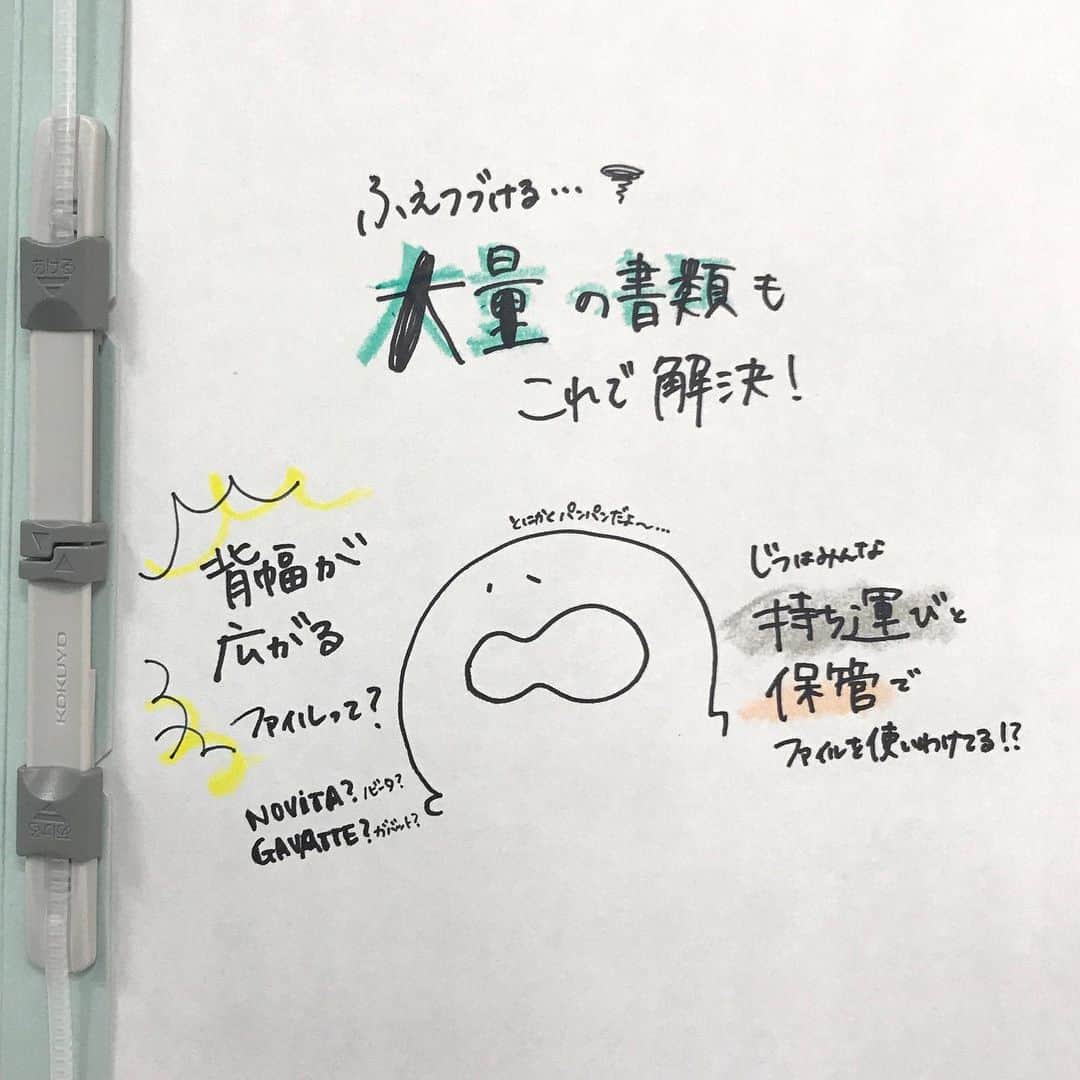 ふえつづける…
大量の書類も
これで解決!
背幅が
広がる
ファイルって?
NOViTA?ノビータ?
GAVATTE?ガバット?
とにかくパンパンだよ〜…
じつはみんな
持ち運びと
保管で
ファイルを使いわけてる!?
あける
KOKUYO
あける